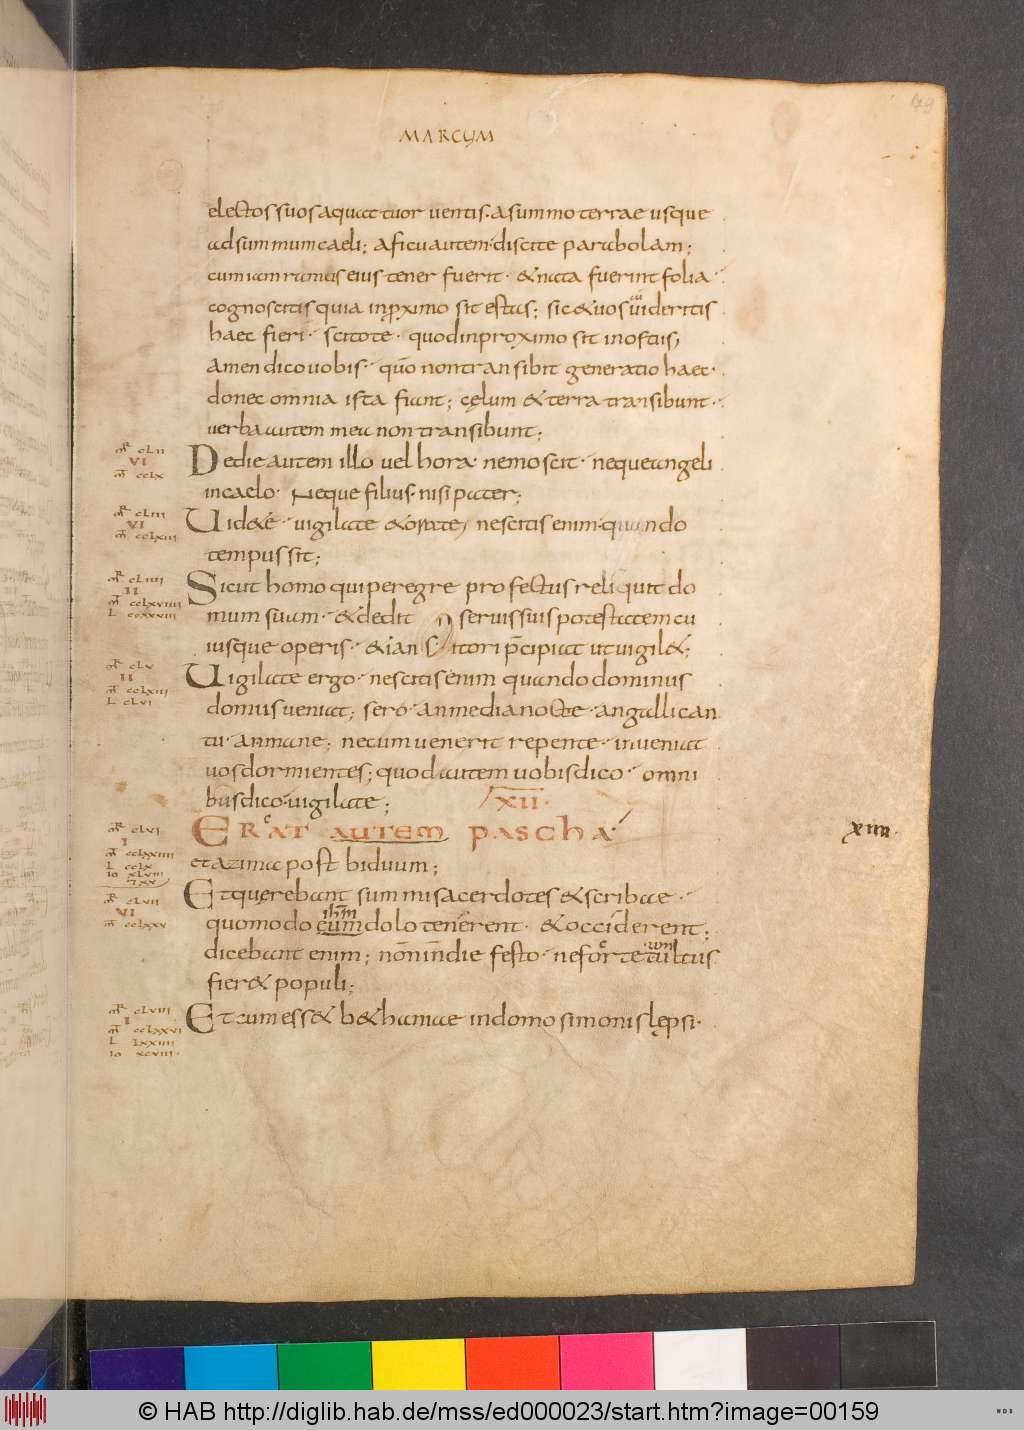 79
MARCUM
electos suos aquattuor uentis. asummo terrae usque
adsummum caeli; aficu autem discite parabolam;
cum iam ramus eius tener fuerit. &nata fuerint folia
cognoscitis quia inproximo sit estas; sic &uos cum uideritis
haec fieri. scitote. quod inproximo sit inostiis;
amen dico uobis. qūo non transibit generatio haec.
donec omnia ista fiant; cęlum & terra transibunt.
uerba autem mea non transibunt;
MR CLII
VI
MT CCLX
Dedie autem illo uel hora nemo scit. neque angeli
incaelo. Neque filius. nisi pater;
MR CLIII
VI
MT CCLXIII
Uid&e. uigilate &orate; nescitis enim. quando
tempus sit;
MR CLIIII
II
MT CCLXVIIII
L CCXXVIII
Sicut homo qui peregre profectus reliquit do
mum suam. &dedit seruis suis potestatem cu
iusque operis. &ianitori p̄cipiat ut uigil&;
MR CLV
II
MT CCLXIII
L CLVI
Uigilate ergo. nescitis enim quando dominus
domus ueniat; sero. an media nocte. an galli can
tu. an mane; necum uenerit repente. inueniat
uos dormientes; quod autem uobis dico. omni
bus dico. uigilate;
XII.
MR CLVI
I
MT CCLXXIIII
L CCLX
IO XLVIII
7XX
ERAT AUTEM PASCHA
XIIII.
et azima post biduum;
MR CLVII
VI
MT CCLXXV
Et querebant summi sacerdotes &scribae.
quomodo eum ihm dolo tenerent. &occiderent;
dicebant enim; non in die festo. ne forte tumultus
fier& populi;
MR CLVIII
I
MT CCLXXVI
L LXXIIII
IO XCVIII.
Et cum ess& b&haniae indomo simonis lępsi.
© HAB http://diglib.hab.de/mss/ed000023/start.htm?image=00159